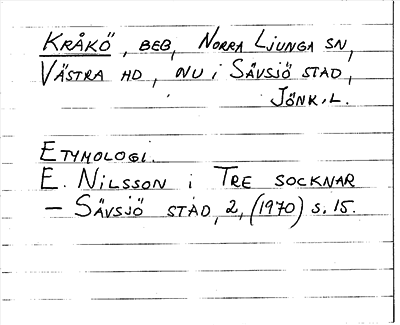 KRÅKÖ, BEB, NORRA LJUNGA SN,
VÄSTRA HD, NU i SÄVSJÖ STAD,
JÖNK.L.
ETYMOLOGI.
E. NILSSON i TRE SOCKNAR
– SÄVSJÖ STAD, 2, (1970) s. 15.